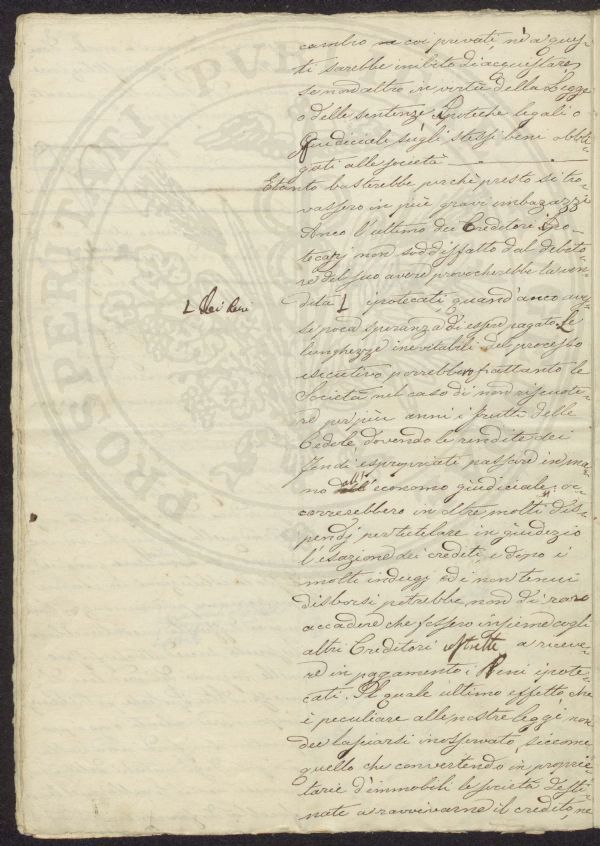 cambio coi privati, nè a ques-
ti sarebbe inibito di acquistare,
se non altro in virtù della Legge
o delle sentenze, Ipoteche legali o
Giudiciali sugli stessi beni obbli-
gati alle società
E tanto basterebbe perchè presto si tro-
vassero in più gravi imbarazzi
Anco l'ultimo dei Creditori Ipo-
tecarj non soddisfatto dal debito-
re del suo avere provocherebbe la ven-
dita L ipotecati, quand'anco aves-
L dei Beni
se poca speranza di esser pagato. Le
lunghezze inevitabili del processo
esecutivo porrebbero frattanto le
Società nel caso di non riscuote-
re per più anni i frutti delle
Cedole dovendo le rendite dei
fondi espropriati passare in ma-
no all'economo giudiciale; oc-
correrebbero in oltre molti dis-
pendj per tutelare in giudizio
l'esazione dei crediti, e dopo i
molti indugj ed i non tenui
disborsi potrebbe non di raro
accadere che fossero insieme cogli
altri Creditori costrette a riceve-
re in pagamento i Beni ipote-
cati. Il quale ultimo effetto, che
è peculiare alle nostre leggi, non
dee lasciarsi inosservato, siccome
quello che convertendo in proprie-
tarie d'immobili le società desti-
nate a ravvivarne il credito, ne
PROSPERITATI
PVB